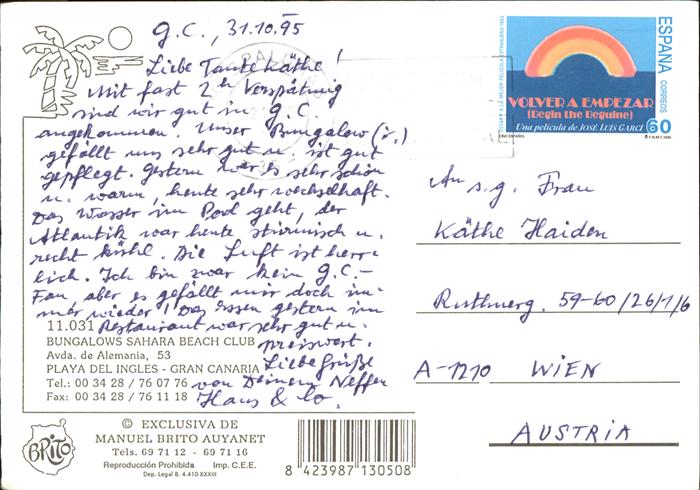 G.C., 31.10.95
Liebe Tante Käthe!
Mit fast 2 h Verspätung
sind wir gut in G.C.
angekommen. Unser Bungalow (i.)
gefällt uns sehr gut u. ist gut
gepflegt. Gestern war es sehr schön
u. warm, heute sehr wechselhaft.
Das Wasser im Pool geht, der
Atlantik war heute stürmisch u.
recht kühl. Die Luft ist herr-
lich. Ich bin zwar kein G.C.-
Fan aber es gefällt mir doch im-
mer wieder! Das Essen gestern im
Restaurant war sehr gut u.
preiswert.
Liebe Grüße
von Deinem Neffen
Hans & Co.
11.031
BUNGALOWS SAHARA BEACH CLUB
Avda. de Alemania, 53
PLAYA DEL INGLES - GRAN CANARIA
Tel.: 00 34 28 / 76 07 76
Fax: 00 34 28 / 76 11 18
BRITO
© EXCLUSIVA DE
MANUEL BRITO AUYANET
Tels. 69 71 12 - 69 71 16
Reproducción Prohibida Imp. C.E.E.
Dep. Legal B. 4.410-XXXIII
8 423987 130508
ESPAÑA
CORREOS
VOLVER A EMPEZAR
(Begin the Beguine)
Una película de JOSÉ LUIS GARCI
60
CINE ESPAÑOL
An s.g. Frau
Käthe Haiden
Ruthnerg. 59-60/26/1/6
A-1210 WIEN
AUSTRIA